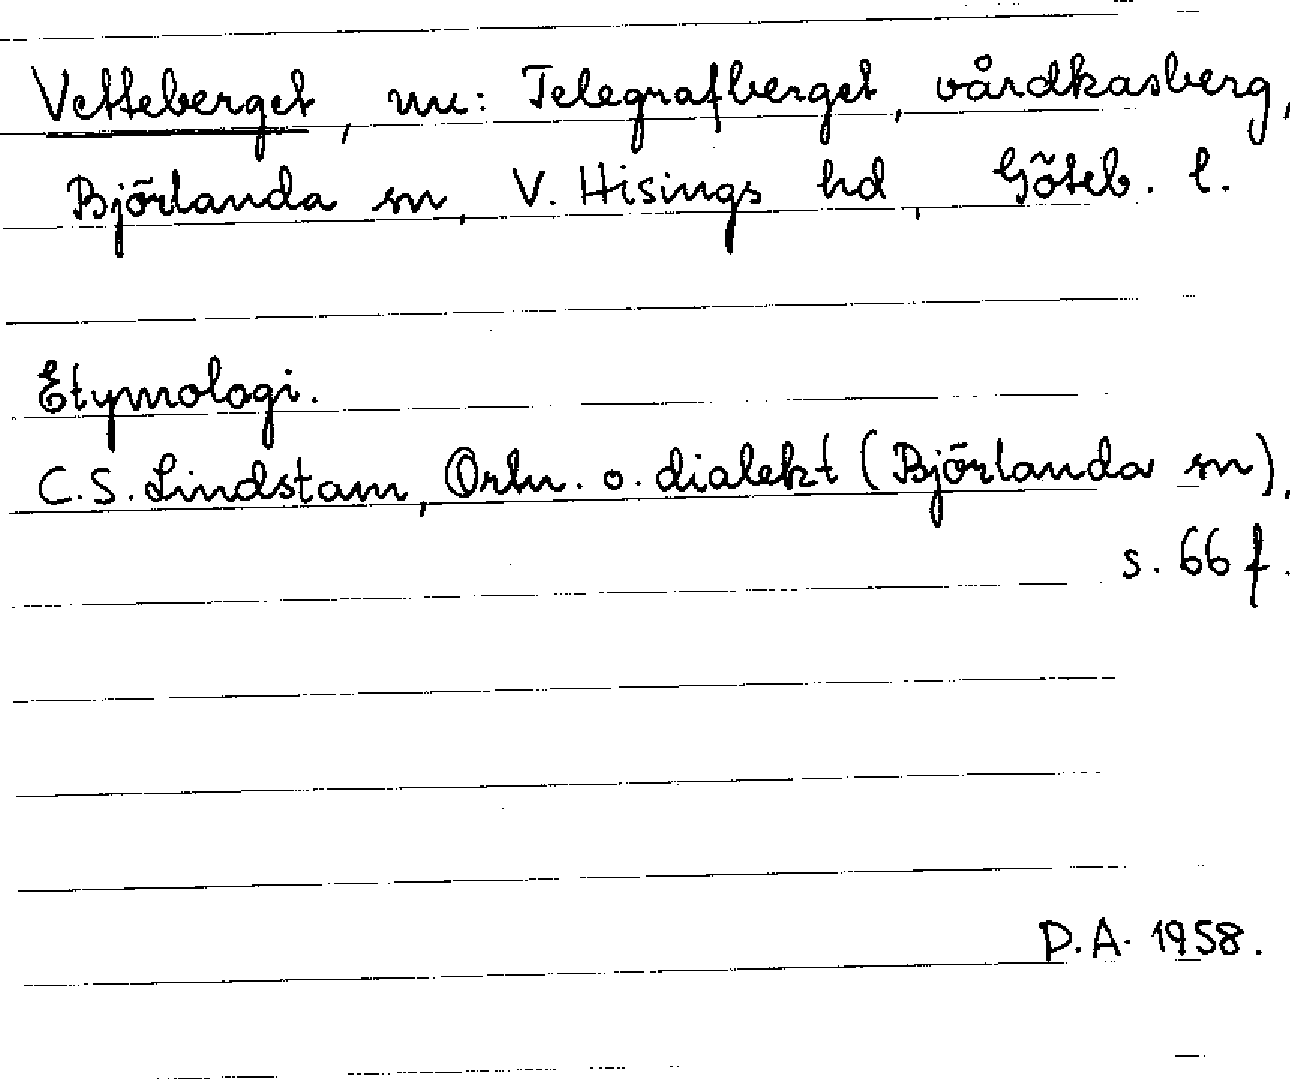 Vetteberget, nu: Telegrafberget, vårdkasberg,
Björlanda sn, V. Hisings hd, Göteb. l.
Etymologi.
C.S. Lindstam, Ortn. o. dialekt (Björlanda sn),
s. 66 f.
D.A. 1958.